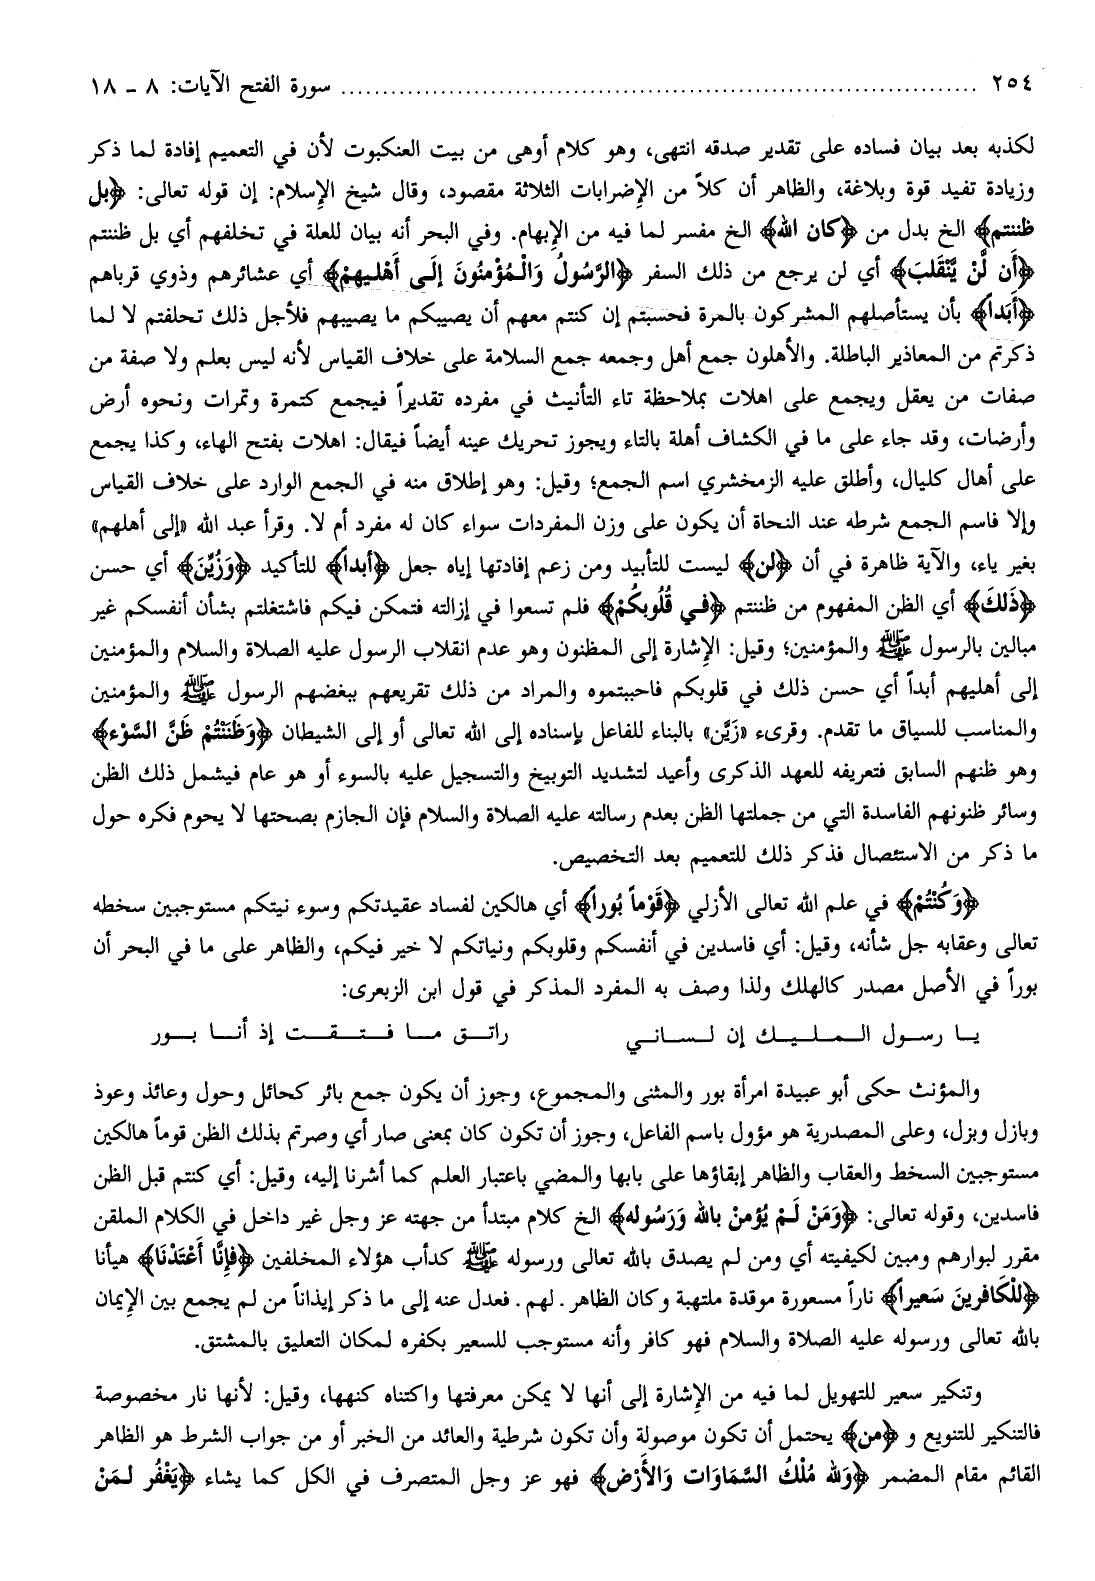 ٢٥٤ ................................................................ سورة الفتح الآيات: ٨ - ١٨
لكذبه بعد بيان فساده على تقدير صدقه انتهى، وهو كلام أوهى من بيت العنكبوت لأن في التعميم إفادة لما ذكر
وزيادة تفيد قوة وبلاغة، والظاهر أن كلاً من الإضرابات الثلاثة مقصود، وقال شيخ الإسلام: إن قوله تعالى: ﴿بل
ظننتم﴾ الخ بدل من ﴿كان الله﴾ الخ مفسر لما فيه من الإبهام. وفي البحر أنه بيان للعلة في تخلفهم أي بل ظننتم
﴿أَن لَّنْ يَّنْقَلبَ﴾ أي لن يرجع من ذلك السفر ﴿الرَّسُولُ وَالْمُؤْمنُونَ إلَى أَهْليهمْ﴾ أي عشائرهم وذوي قرباهم
﴿أَبَداً﴾ بأن يستأصلهم المشركون بالمرة فحسبتم إن كنتم معهم أن يصيبكم ما يصيبهم فلأجل ذلك تخلفتم لا لما
ذكرتم من المعاذير الباطلة. والأهلون جمع أهل وجمعه جمع السلامة على خلاف القياس لأنه ليس بعلم ولا صفة من
صفات من يعقل ويجمع على اهلات بملاحظة تاء التأنيث في مفرده تقديراً فيجمع كتمرة وتمرات ونحوه أرض
وأرضات، وقد جاء على ما في الكشاف أهلة بالتاء ويجوز تحريك عينه أيضاً فيقال: اهلات بفتح الهاء، وكذا يجمع
على أهال كليال، وأطلق عليه الزمخشري اسم الجمع؛ وقيل: وهو إطلاق منه في الجمع الوارد على خلاف القياس
وإلا فاسم الجمع شرطه عند النحاة أن يكون على وزن المفردات سواء كان له مفرد أم لا. وقرأ عبد الله «إلى أهلهم»
بغير ياء، والآية ظاهرة في أن ﴿لن﴾ ليست للتأبيد ومن زعم إفادتها إياه جعل ﴿أبداً﴾ للتأكيد ﴿وَزُيِّنَ﴾ أي حسن
﴿ذَلكَ﴾ أي الظن المفهوم من ظننتم ﴿في قُلُوبكُمْ﴾ فلم تسعوا في إزالته فتمكن فيكم فاشتغلتم بشأن أنفسكم غير
مبالين بالرسول ﷺ والمؤمنين؛ وقيل: الإشارة إلى المظنون وهو عدم انقلاب الرسول عليه الصلاة والسلام والمؤمنين
إلى أهليهم أبداً أي حسن ذلك في قلوبكم فاحببتموه والمراد من ذلك تقريعهم ببغضهم الرسول ﷺ والمؤمنين
والمناسب للسياق ما تقدم. وقرىء «زَيَّن» بالبناء للفاعل بإسناده إلى الله تعالى أو إلى الشيطان ﴿وَظَنَنْتُمْ ظَنَّ السَّوْء﴾
وهو ظنهم السابق فتعريفه للعهد الذكرى وأعيد لتشديد التوبيخ والتسجيل عليه بالسوء أو هو عام فيشمل ذلك الظن
وسائر ظنونهم الفاسدة التي من جملتها الظن بعدم رسالته عليه الصلاة والسلام فإن الجازم بصحتها لا يحوم فكره حول
ما ذكر من الاستئصال فذكر ذلك للتعميم بعد التخصيص.
﴿وَكُنْتُمْ﴾ في علم الله تعالى الأزلي ﴿قَوْماً بُوراً﴾ أي هالكين لفساد عقيدتكم وسوء نيتكم مستوجبين سخطه
تعالى وعقابه جل شأنه، وقيل: أي فاسدين في أنفسكم وقلوبكم ونياتكم لا خير فيكم، والظاهر على ما في البحر أن
بوراً في الأصل مصدر كالهلك ولذا وصف به المفرد المذكر في قول ابن الزبعرى:
يا رسول المليك إن لساني راتق ما فتقت إذ أنا بور
والمؤنث حكى أبو عبيدة امرأة بور والمثنى والمجموع، وجوز أن يكون جمع بائر كحائل وحول وعائذ وعوذ
وبازل وبزل، وعلى المصدرية هو مؤول باسم الفاعل، وجوز أن تكون كان بمعنى صار أي وصرتم بذلك الظن قوماً هالكين
مستوجبين السخط والعقاب والظاهر إبقاؤها على بابها والمضي باعتبار العلم كما أشرنا إليه، وقيل: أي كنتم قبل الظن
فاسدين، وقوله تعالى: ﴿وَمَنْ لَمْ يُؤمنْ بالله وَرَسُوله﴾ الخ كلام مبتدأ من جهته عز وجل غير داخل في الكلام الملقن
مقرر لبوارهم ومبين لكيفيته أي ومن لم يصدق بالله تعالى ورسوله ﷺ كدأب هؤلاء المخلفين ﴿فإنَّا أَعْتَدْنَا﴾ هيأنا
﴿للْكَافرينَ سَعيراً﴾ ناراً مسعورة موقدة ملتهبة وكان الظاهر. لهم. فعدل عنه إلى ما ذكر إيذاناً من لم يجمع بين الإيمان
بالله تعالى ورسوله عليه الصلاة والسلام فهو كافر وأنه مستوجب للسعير بكفره لمكان التعليق بالمشتق.
وتنكير سعير للتهويل لما فيه من الإشارة إلى أنها لا يمكن معرفتها واكتناه كنهها، وقيل: لأنها نار مخصوصة
فالتنكير للتنويع و ﴿من﴾ يحتمل أن تكون موصولة وأن تكون شرطية والعائد من الخبر أو من جواب الشرط هو الظاهر
القائم مقام المضمر ﴿وَلله مُلْكُ السَّمَاوَات وَالأَرْض﴾ فهو عز وجل المتصرف في الكل كما يشاء ﴿يَغْفُر لمَنْ